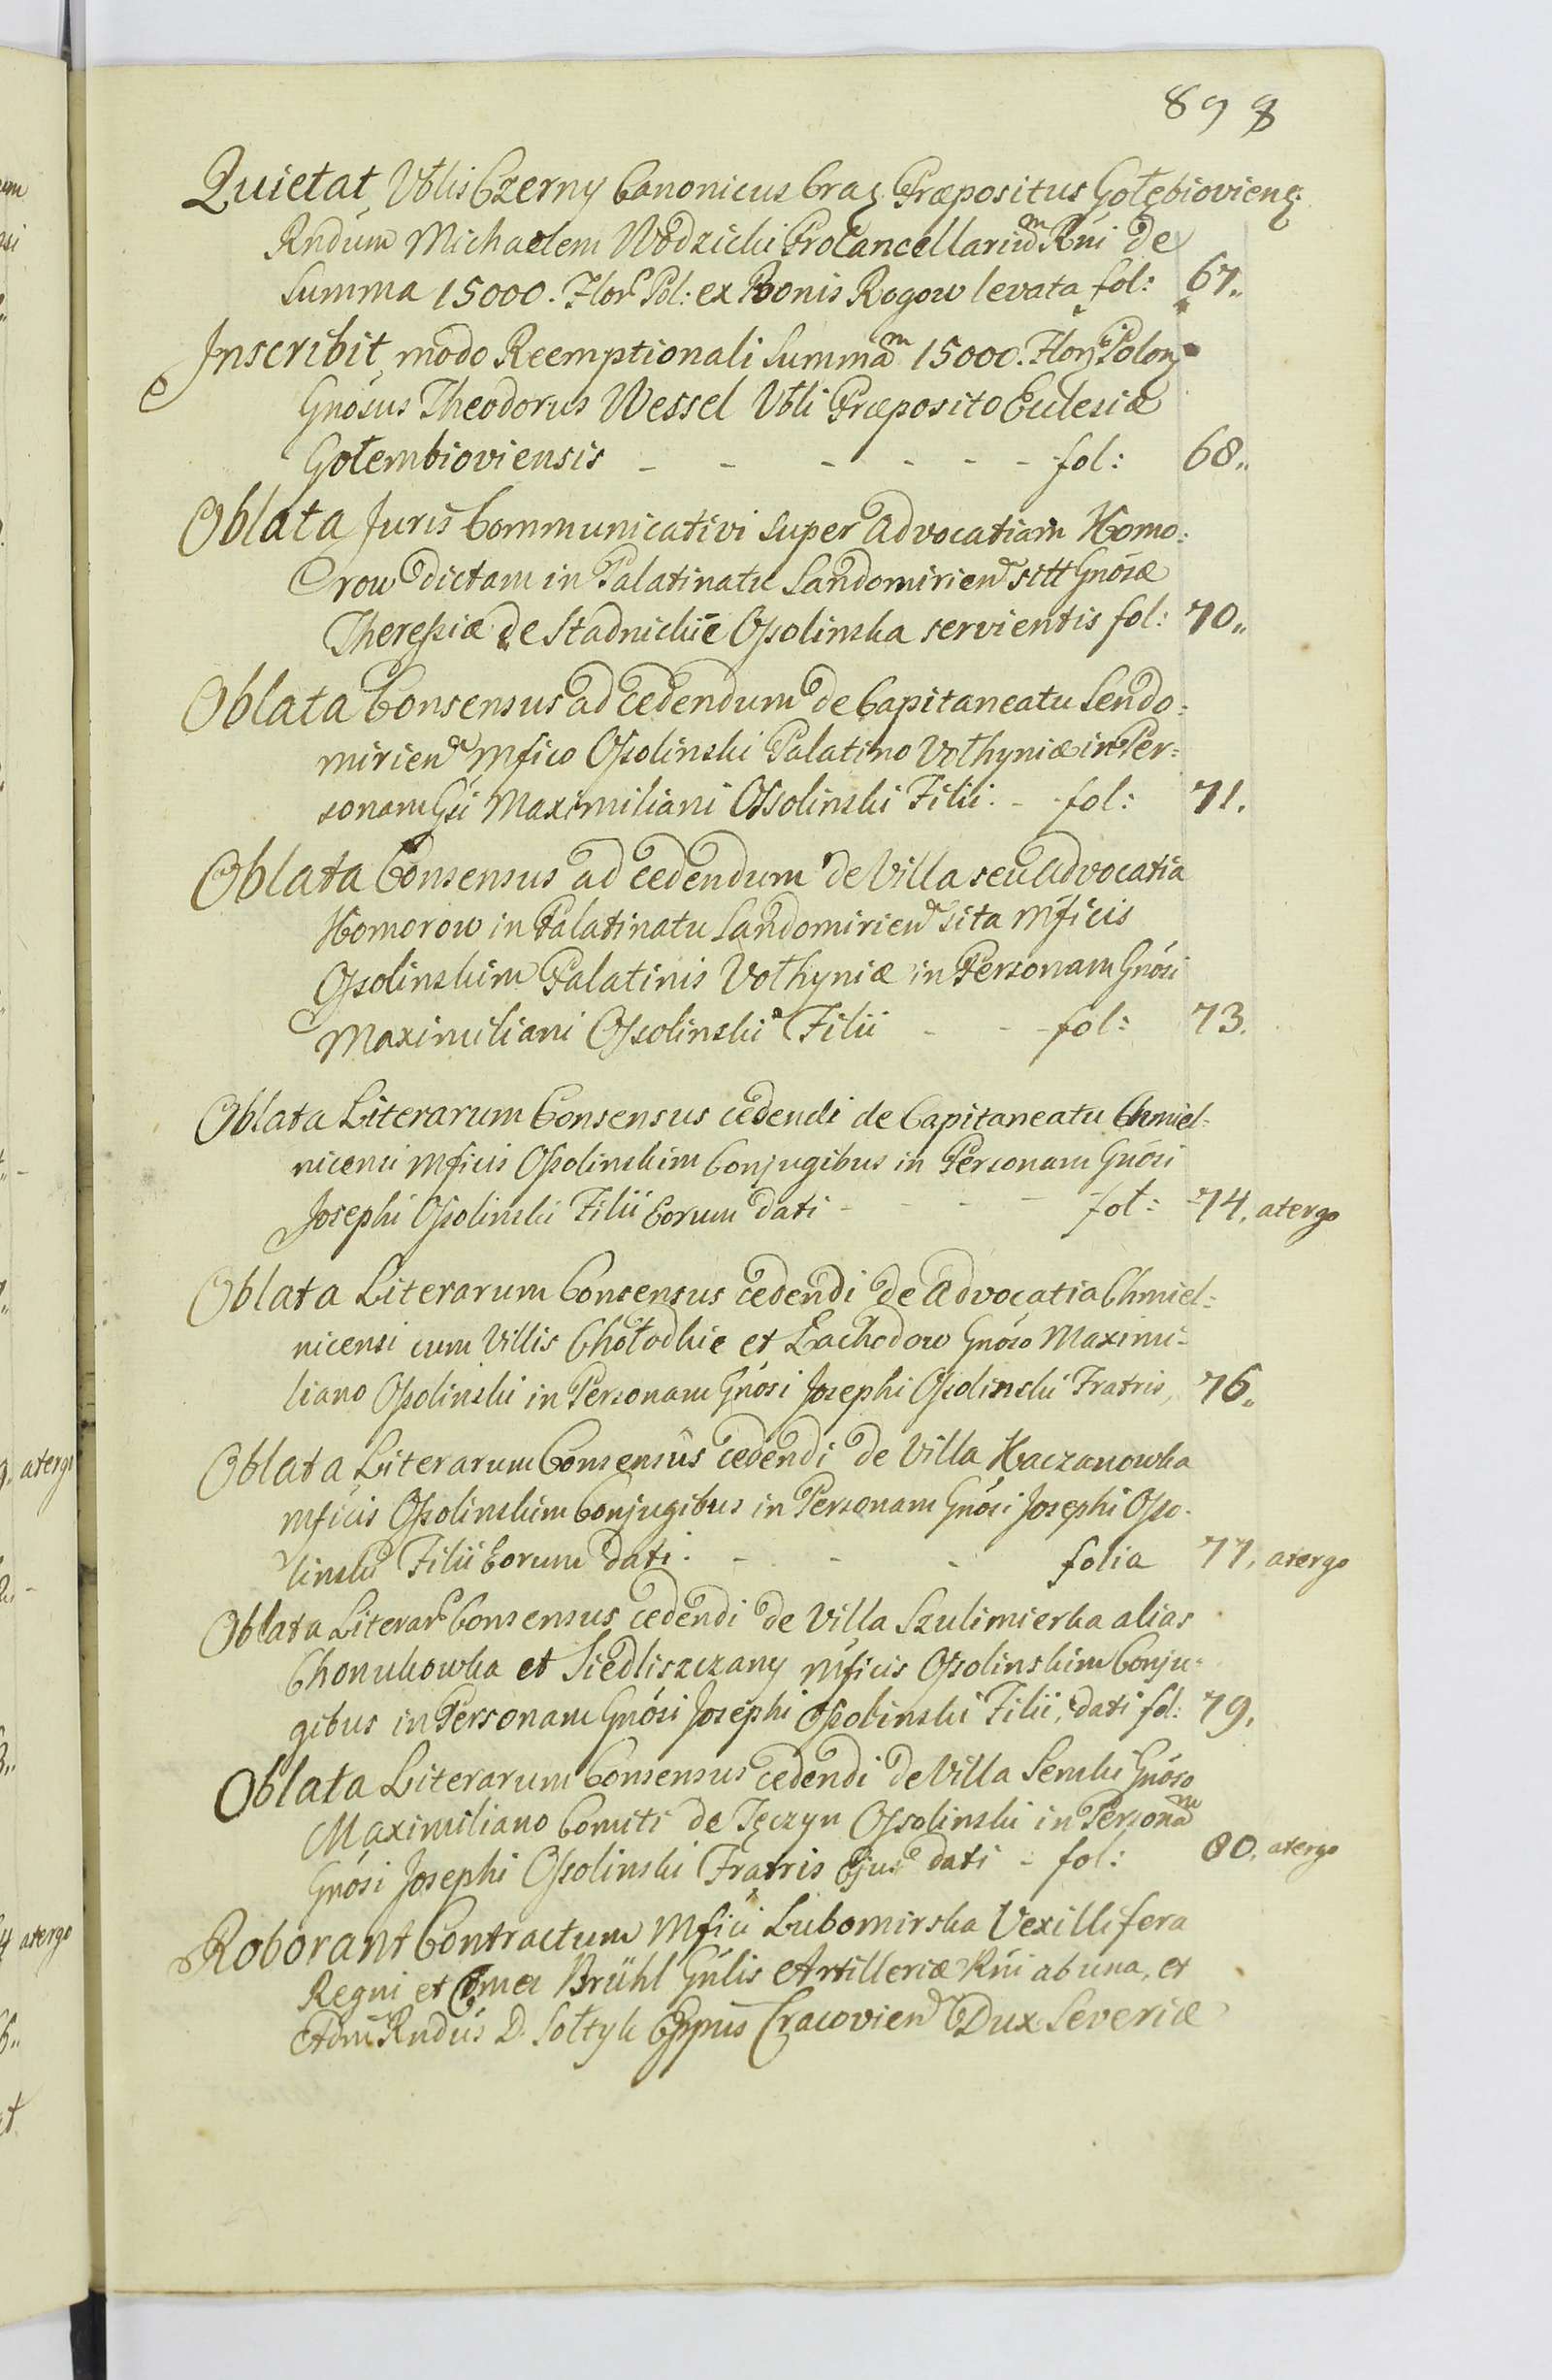 898
Quietat Vblis Czerny Canonicus Crac. Præpositus Gołębioviens.
Rndum Michaelem Wodzicki Procancellarium Rni de
Summa 15000. Flor. Pol: ex Bonis Rogow levata fol: 67.
Inscribit modo Reemptionali Summam 15000. Flor. Polon.
Gnosus Theodorus Wessel Vbli Præposito Eclesiæ
Gołembioviensis - - - - - - fol: 68.
Oblata Juris Communicativi super Advocatiam Komo:
row dictam in Palatinatu Sandomirien sitt Gnosæ
Theressiæ de Stadnickie Ossolinska servientis fol: 70.
Oblata Consensus ad cedendum de Capitaneatu Sendo:
mirien Mfico Ossolinski Palatino Vołhyniæ in Per:
sonam Gsi Maximiliani Ossolinski Filii. - fol: 71.
Oblata Consensus ad cedendum de Villa seu Advocatia
Komorow in Palatinatu Sandomirien sita Mficis
Ossolinskim Palatinis Vołhyniæ in Personam Gnosi
Maximiliani Ossolinski Filii - - fol: 73.
Oblata Literarum Consensus cedendi de Capitaneatu Chmiel-
nicensi Mficis Ossolinskim Conjugibus in Personam Gnosi
Josephi Ossolinski Filii Eorum dati - - - - fol: 74, atergo
Oblata Literarum Consensus cedendi de Advocatia Chmiel:
nicensi cum Villis Chołodkie et Lachodow Gnoso Maximi-
liano Ossolinski in Personam Gnosi Josephi Ossolinski Fratris, 76.
Oblata Literarum Consensus cedendi de Villa Kaczanowka
Mficis Ossolinskim Conjugibus in Personam Gnosi Josephi Osso-
linski Filii Eorum dati. - - - folia 77, atergo
Oblata Literar. Consensus cedendi de Villa Szulimierka alias
Chonukowka et Siedliszczany Mficis Ossolinskim Conju-
gibus in Personam Gnosi Josephi Ossolinski Filii, dati fol: 79,
Oblata Literarum Consensus cedendi de Villa Senki Gnoso
Maximiliano Comiti de Tęczyn Ossolinski in Personam
Gnosi Josephi Ossolinski Fratris Ejus dati - fol: 80, atergo
Roborant Contractum Mfici Lubomirska Vexillifera
Regni et Comes Brühl Gnlis Artilleriæ Rni ab una, et
Adm Rndus D. Sołtyk Eppus Cracovien Dux Severiæ